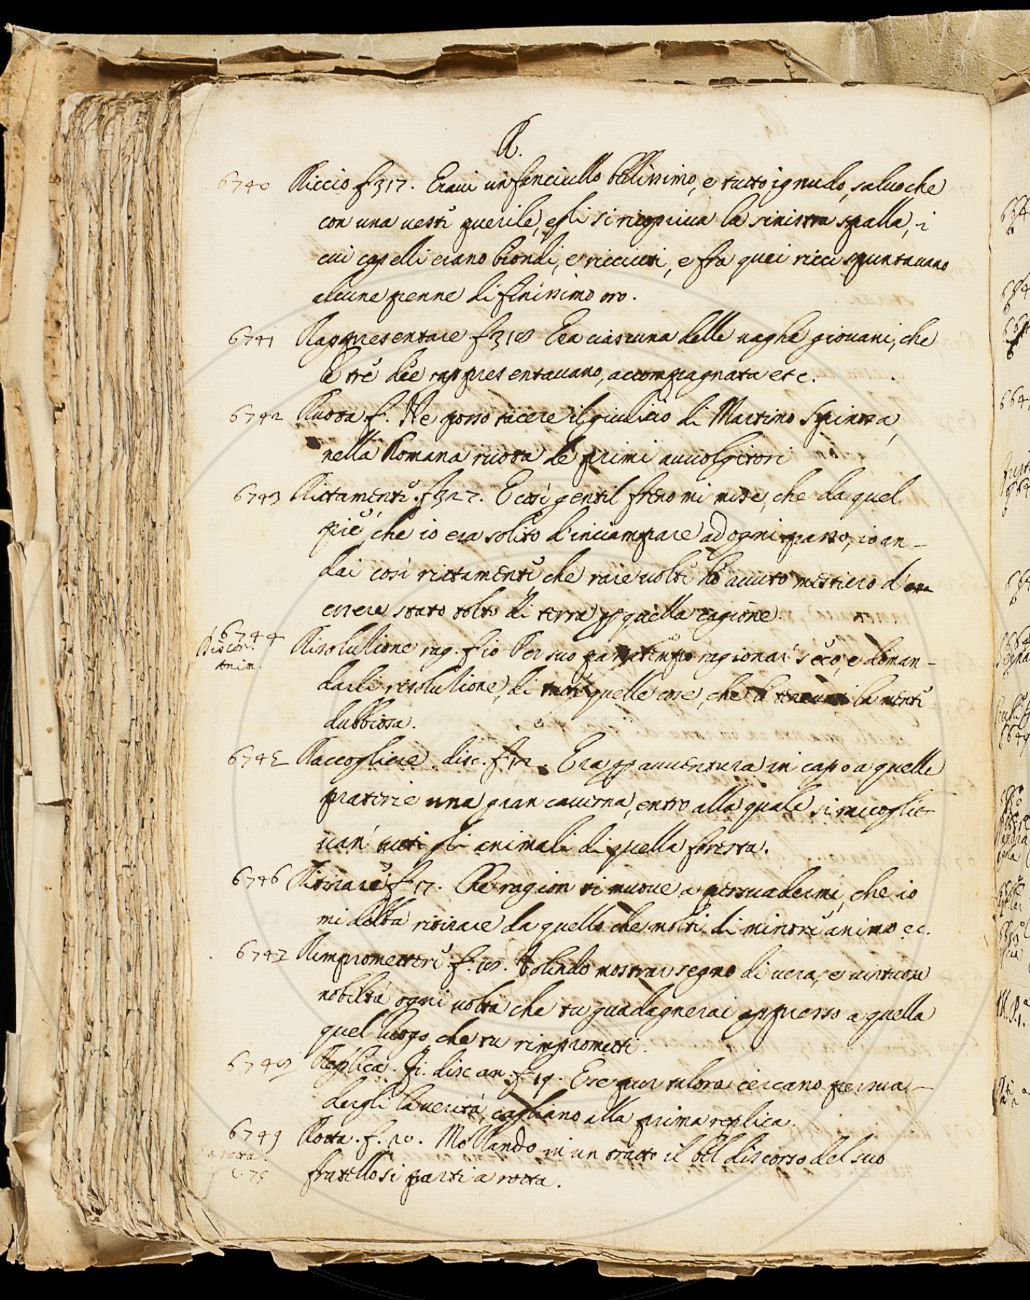 R.
6740 Riccio f. 317. Eravi un fanciullo bellissimo, e tutto ignudo, salvo che
con una vesti puerile, egli si ricopriva la sinistra spalla, i
cui capelli erano biondi, e ricciuti, e fra quei ricci spuntavano
alcune penne di finissimo oro.
6741 Rappresentare f. 318 Era ciascuna delle vaghe giovani, che
le trè dèe rappresentavano, accompagnata etc.
6742 Ruota f. Ne posso tacere il giudicio di Martino Spinosa,
nella Romana ruota de primi avvolgitori
6743 Rittamente f. 327. E così gentil freno mi mise, che da quel
piè, che io era solito d'inciampare ad ogni passo, io an-
dai così rittamente che rare volte ho avuto mestiero d'
essere stato tolto di terra p quella cagione.
6744 Risoluzione rag. f. 10 Per suo ragionar seco, e doman-
Discor. anim.
darli resoluzione di quelle cose, che la mente
dubbiosa.
6745 Raccogliere disc. f. 12. Era p avventura in capo a quelle
praterie una gran caverna, entro alla quale si raccoglie-
van tutti gli animali di quella foresta.
6746 Ritrarre f. 17. Che ragion ti muove a persuadermi, che io
mi debba ritirare da quello che molti di minore animo ec.
6747 Rimprometteri f. 18. nostrar segno di vera, e virtuosa
nobiltà ogni volta che tu guadagnerai appresso a quella
quel luogo che tu rimprometti.
6748 Replica. Fi. disc an. f. 19. E se pur talora cercano persua-
dergli la verità, cagliano alla prima replica.
6749 Rotta. f. 20. Mozzando in un tratto il bel discorso del suo
fratello si partì a rotta.